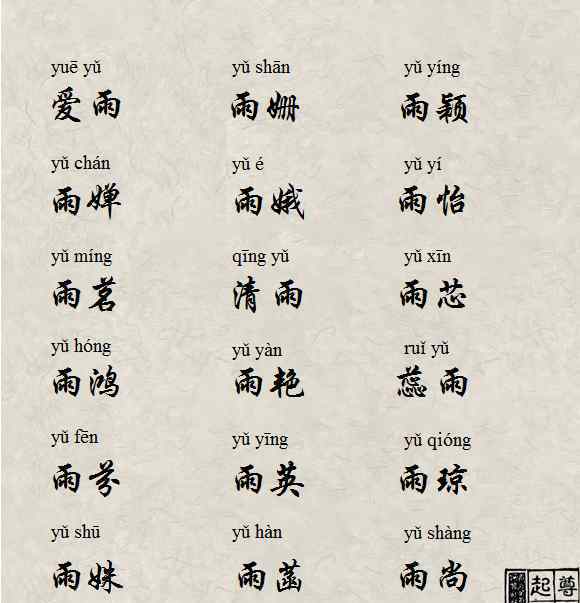 yuē yǔ yǔ shān yǔ yíng
爱雨 雨姗 雨颖
yǔ chán yǔ é yǔ yí
雨婵 雨娥 雨怡
yǔ míng qīng yǔ yǔ xīn
雨茗 清雨 雨芯
yǔ hóng yǔ yàn ruǐ yǔ
雨鸿 雨艳 蕊雨
yǔ fēn yǔ yīng yǔ qióng
雨芬 雨英 雨琼
yǔ shū yǔ hàn yǔ shàng
雨姝 雨菡 雨尚
起 尊